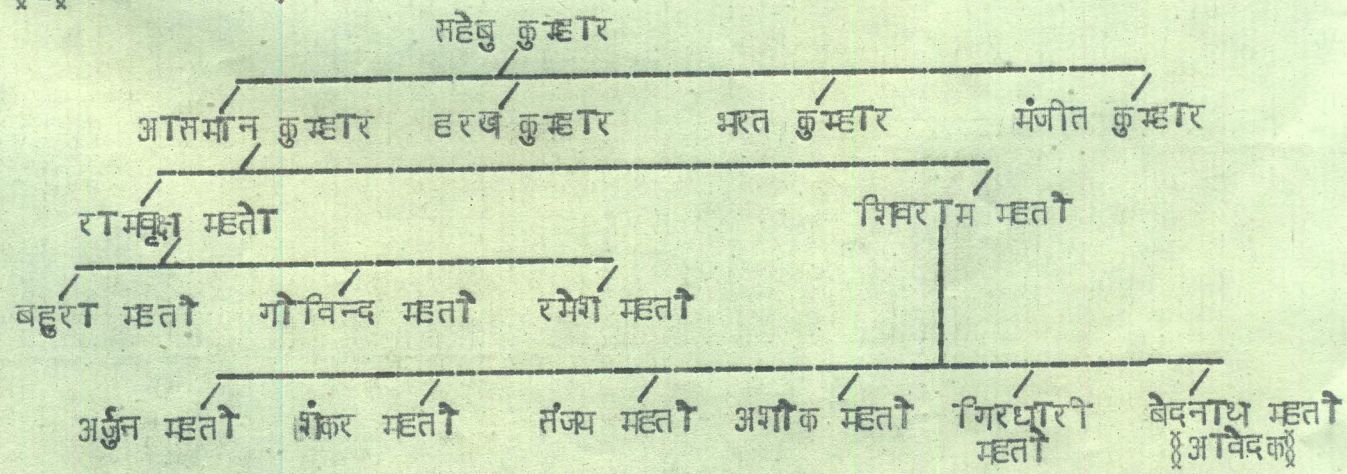 सहेबु कुम्हार
आसमान कुम्हार हरख कुम्हार भरत कुम्हार मंजीत कुम्हार
रामवृक्ष महतो शिवराम महतो
बहुरा महतो गोविन्द महतो रमेश महतो
अर्जुन महतो शंकर महतो संजय महतो अशोक महतो गिरधारी बेदनाथ महतो
महतो (आवेदक)